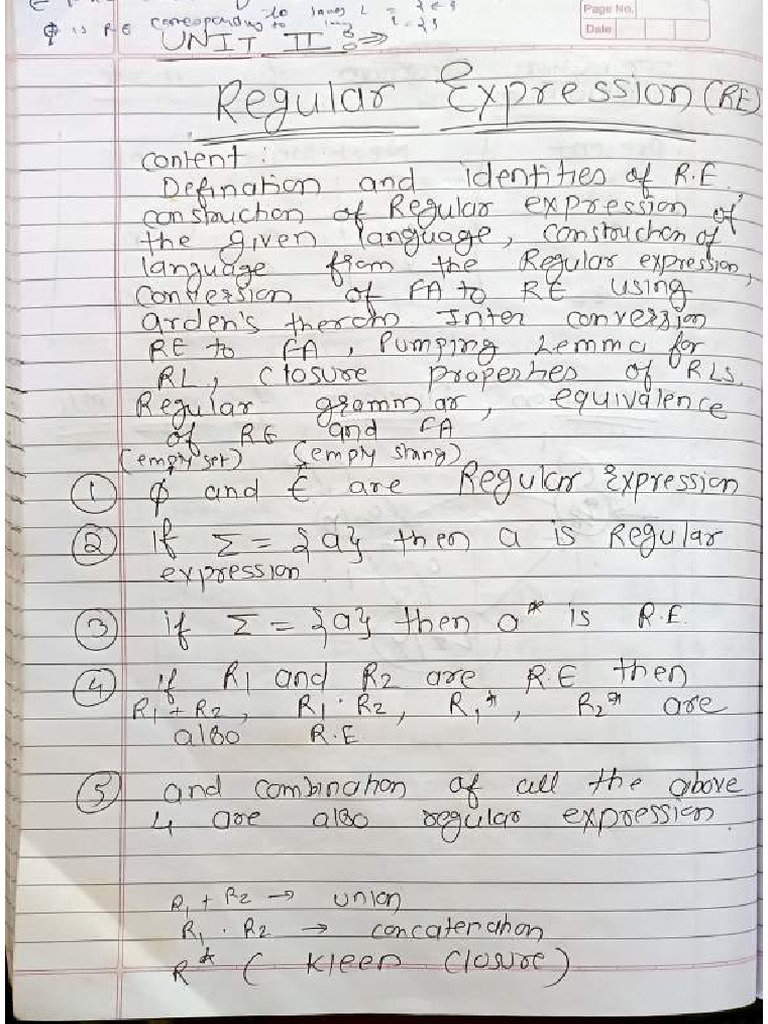 Page No.
Date
Φ is RE corresponding to
UNIT II :⇒
Regular Expression (RE)
content :
Defination and identities of R.E
construction of Regular expression of
the given language, construction of
language from the Regular expression,
conversion of FA to RE using
arden's therom Inter conversion
RE to FA, Pumping Lemma for
RL, closure properties of RLs.
Regular grammar, equivalence
of RE and FA
(empty set) (empty string)
① ϕ and Є are Regular Expression
② if Σ = {a} then a is Regular
expression
③ if Σ = {a} then a* is R.E.
④ if R1 and R2 are R.E then
R1 + R2, R1 · R2, R1*, R2* are
also R.E
⑤ and combination of all the above
4 are also regular expression.
R1 + R2 → union
R1 . R2 → concatenation
R* ( Kleen Closure )